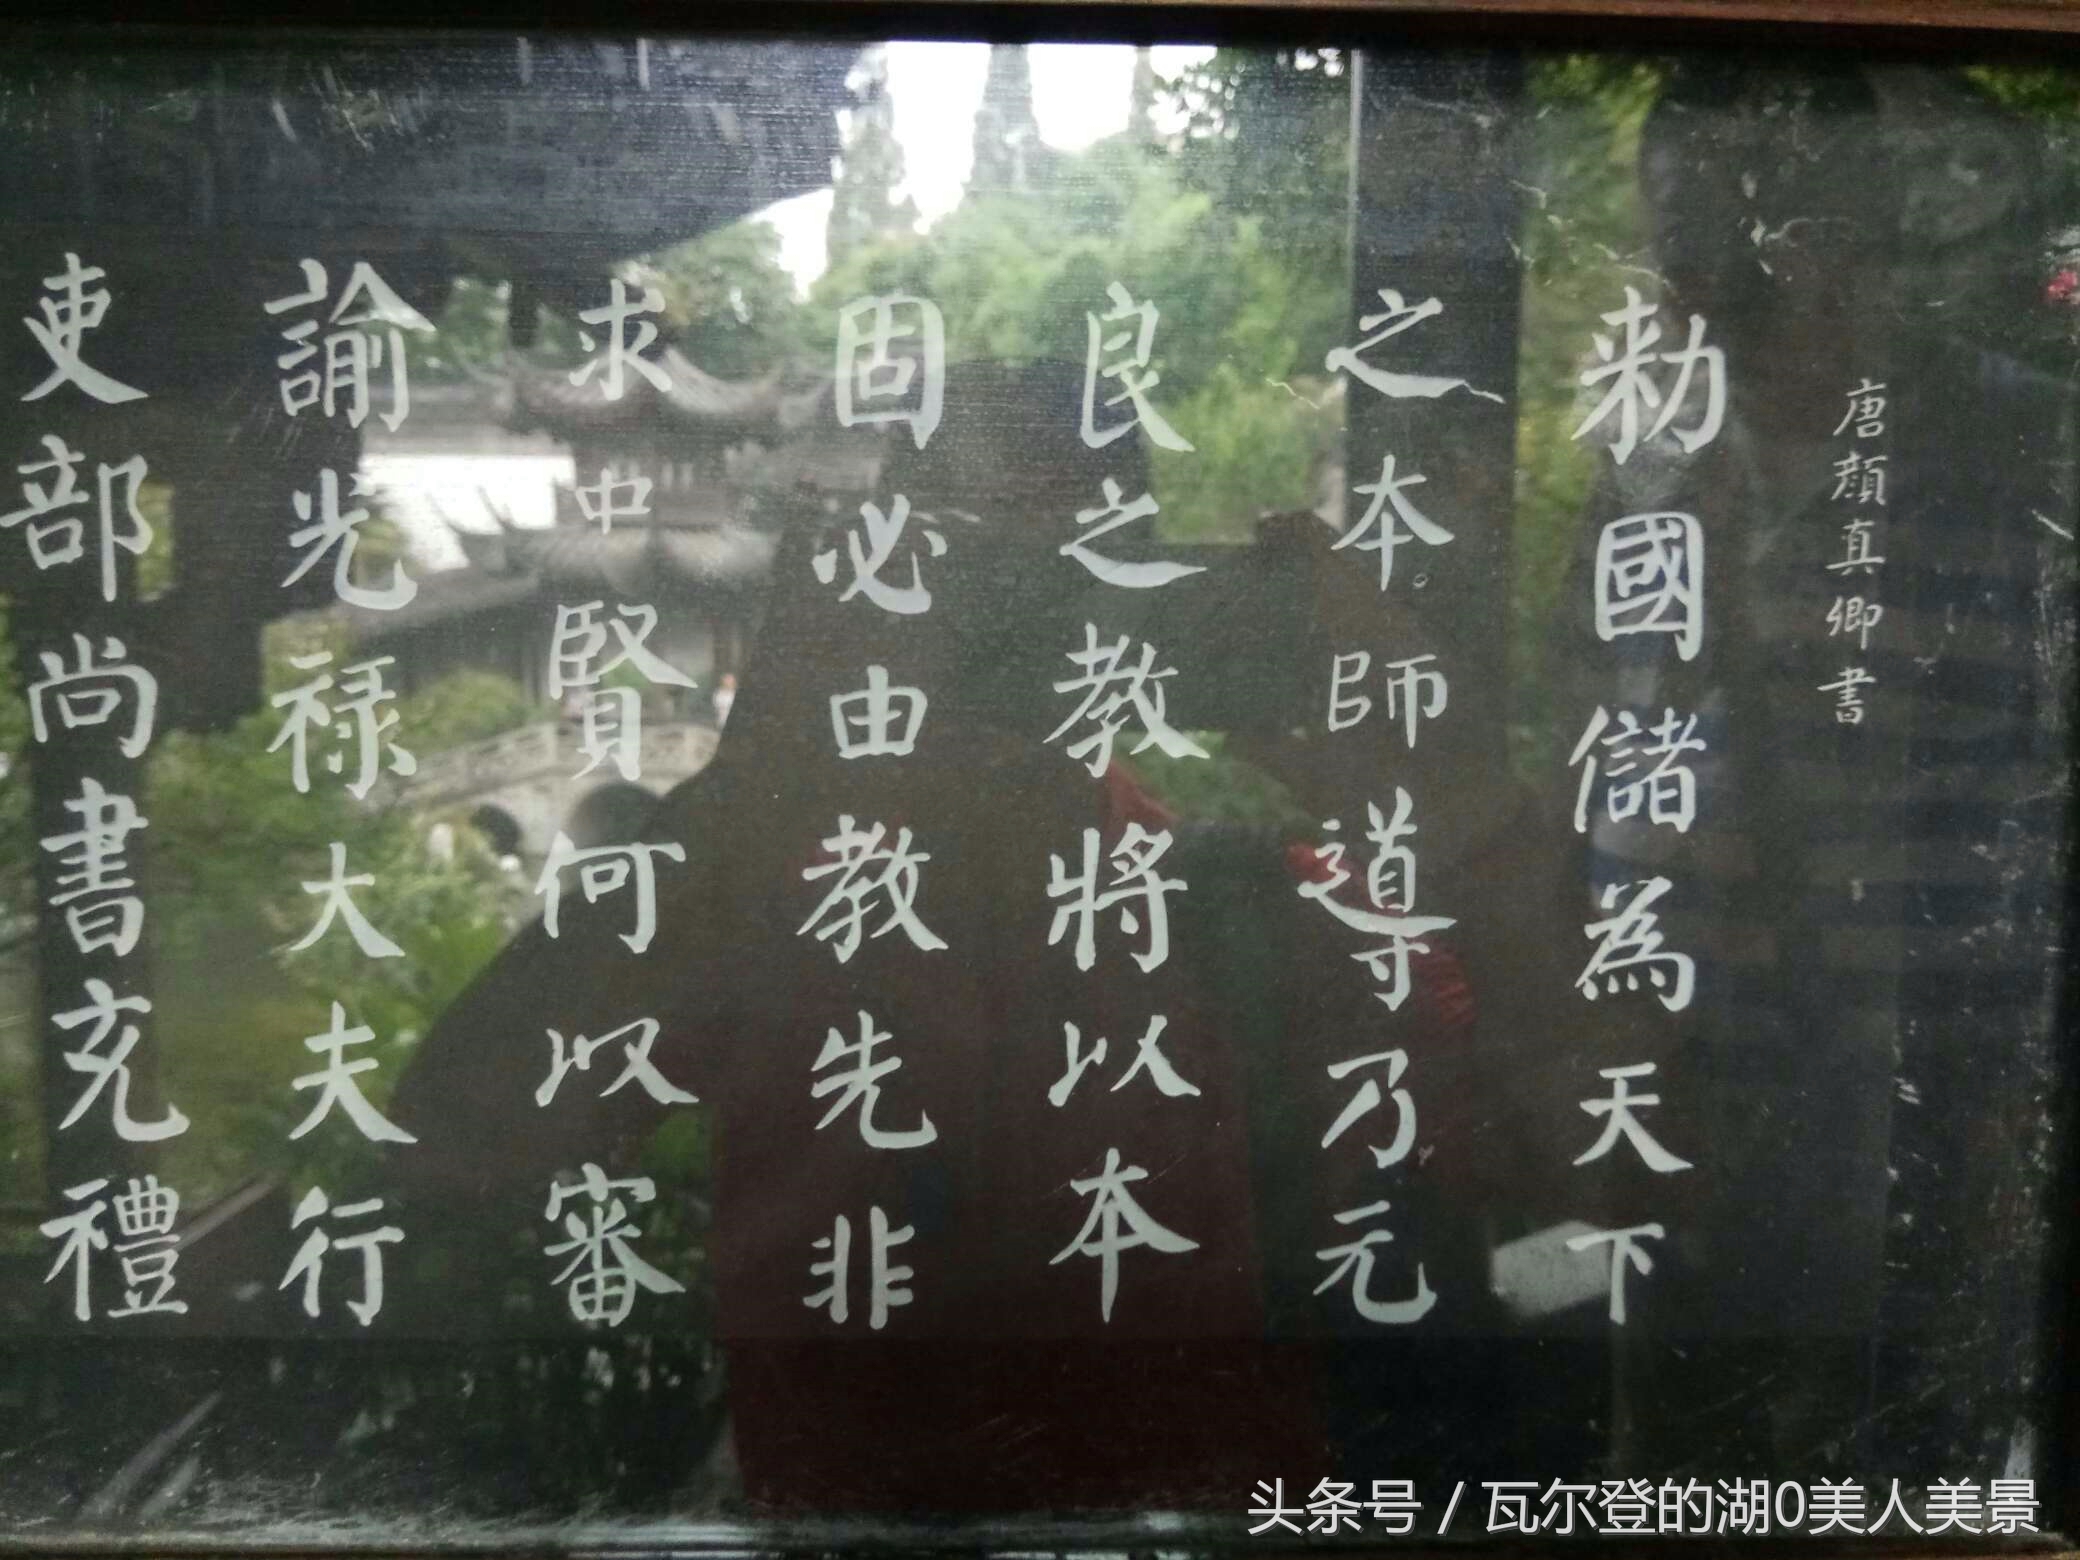 唐顏真卿書
勑國儲為天下
之本。師導乃元
良之教將以本
固必由教先非
求中賢何以審
諭光禄大夫行
吏部尚書充禮
头条号 / 瓦尔登的湖0美人美景